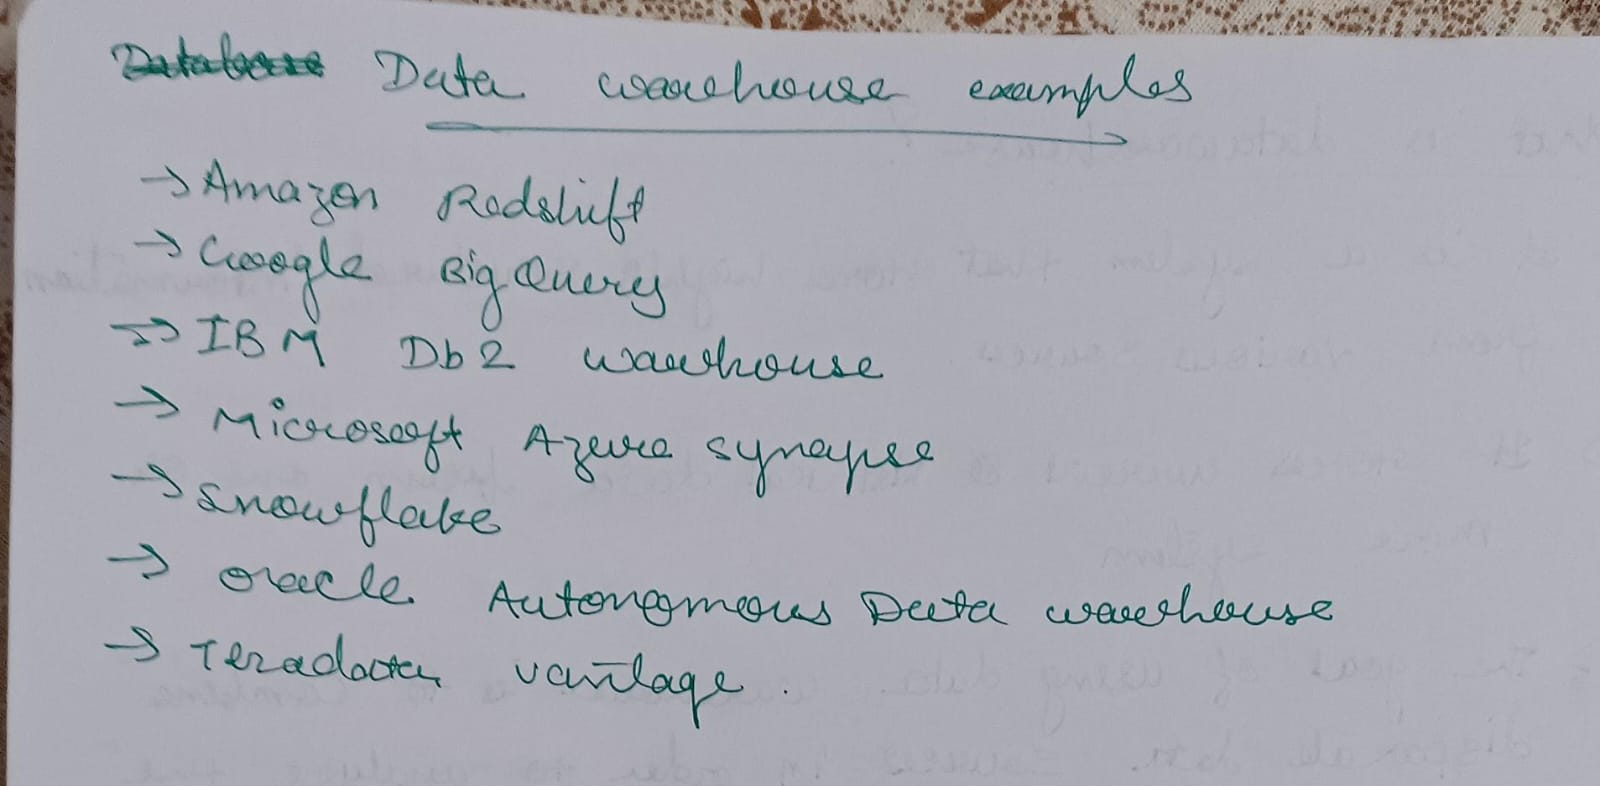 Data warehouse examples
→ Amazon Redshift
→ Google BigQuery
→ IBM Db2 warehouse
→ Microsoft Azure synapse
→ snowflake
→ oracle Autonomous Data warehouse
→ Teradata vantage.